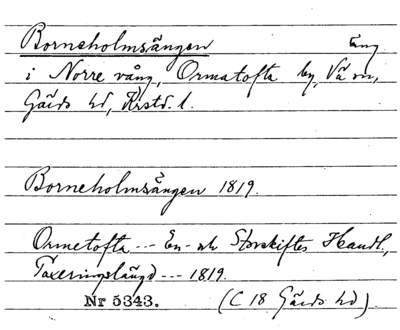 Borneholmsängen äng
i Norre vång, Ormatofta by, Vä sn,
Gärds hd, Krstd. l.
Borneholmsängen 1819.
Ormetofta --- En- och Storskiftes Handl.,
Taxeringslängd --- 1819.
Nr 5343. (C 18 Gärds hd)